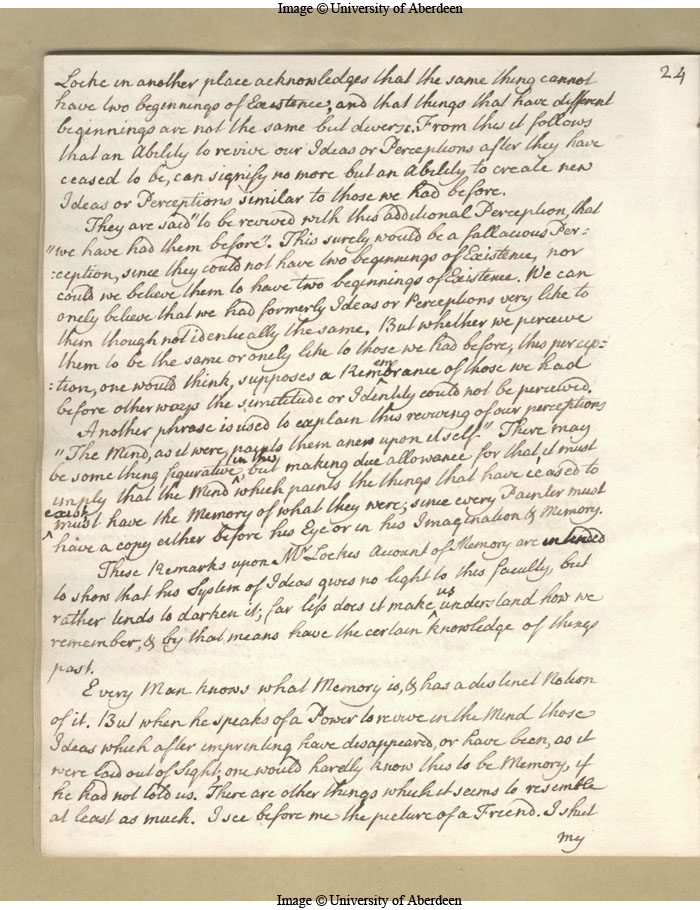 Image © University of Aberdeen
24
Locke in another place acknowledges that the same thing cannot
have two beginnings of Existence, and that things that have different
beginnings are not the same but diverse. From this it follows
that an Ability to revive our Ideas or Perceptions after they have
ceased to be, can signify no more but an Ability to create new
Ideas or Perceptions similar to those we had before.
They are said "to be revived with this additional Perception, that
"we have had them before". This surely would be a fallacious Per:
:ception, since they could not have two beginnings of Existence, nor
could we believe them to have two beginnings of Existence. We can
onely believe that we had formerly Ideas or Perceptions very like to
them though not identically the same. But whether we perceive
them to be the same or onely like to those we had before, this percep:
:tion, one would think, supposes a Remembrance of those we had
before otherways the similitude or Identity could not be perceived.
Another phrase is used to explain this reviving of our perceptions
"The Mind, as it were, paints them anew upon itself." There may
be something figurative in this, but making due allowance for that, it must
imply that the Mind which paints the things that have ceased to
exist must have the Memory of what they were; since every Painter must
have a copy either before his Eye or in his Imagination & Memory.
These Remarks upon Mr Lockes Account of Memory are intended
to show that his System of Ideas gives no light to this faculty, but
rather tends to darken it; far less does it make us understand how we
remember, & by that means have the certain knowledge of things
past.
Every Man knows what Memory is, & has a distinct Notion
of it. But when he speaks of a Power to revive in the Mind those
Ideas which after imprinting have disappeared, or have been, as it
were laid out of Sight; one would hardly know this to be Memory, if
he had not told us. There are other things which it seems to resemble
at least as much. I see before me the picture of a Friend. I shut
my
Image © University of Aberdeen